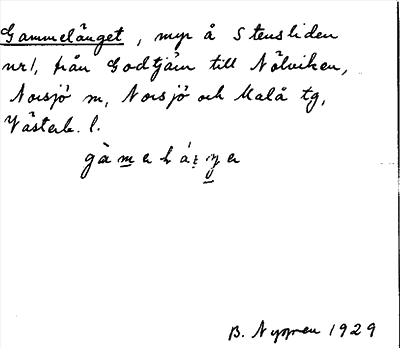 Gammelänget, myr å Stensliden
nr1, från Godtjärn till Nölviken,
Norsjö m, Norsjö och Malå tg,
Västerb. l.
B. Nygren 1929